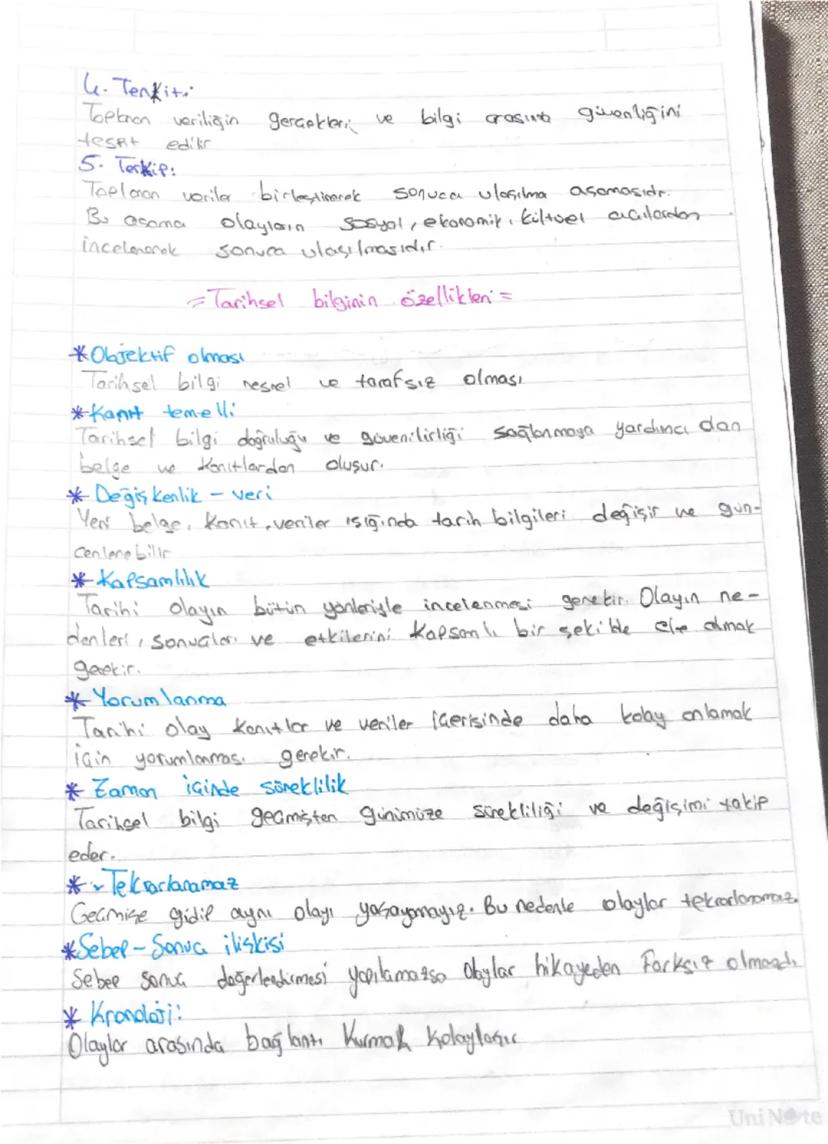 4. Tenkit:
Toplanan veriliğin gerçekleri ve bilgi arasına güvenliğini
tespit edilir
5. Terkip:
Toplanan veriler birleştirerek sonuca ulaşılma aşamasıdır.
Bu aşama olayların sosyal, ekonomik, kültürel açılardan
incelenerek sonuca ulaşılmasıdır.
= Tarihsel bilginin özellikleri =
* Objektif olması
Tarihsel bilgi nesnel ve tarafsız olması
* Kanıt temelli
Tarihsel bilgi doğruluğu ve güvenilirliği sağlanmaya yardımcı olan
belge ve kanıtlardan oluşur.
* Değişkenlik - veri
Yeni belge, kanıt, veriler ışığında tarih bilgileri değişir ve gün-
cenlenebilir
* Kapsamlılık
Tarihi olayın bütün yönleriyle incelenmesi gerekir. Olayın ne-
denleri, sonuçları ve etkilerini kapsamlı bir şekilde ele almak
gerekir.
* Yorumlanma
Tarihi olay kanıtlar ve veriler içerisinde daha kolay anlamak
için yorumlanması gerekir.
* Zaman içinde süreklilik
Tarihsel bilgi geçmişten günümüze sürekliliği ve değişimi takip
eder.
* Tekrarlanamaz
Geçmişe gidip aynı olayı yaşayamayız. Bu nedenle olaylar tekrarlanamaz.
* Sebep - Sonuç ilişkisi
Sebep sonuç değerlendirmesi yapılamazsa olaylar hikayeden farksız olmazdı
* Kronoloji:
Olaylar arasında bağlantı kurmak kolaylaşır
UniNote